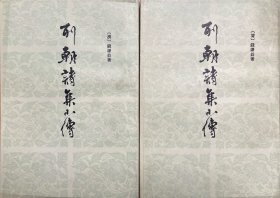 列朝詩集小傳
〔清〕錢謙益著
列朝詩集小傳
〔清〕錢謙益著